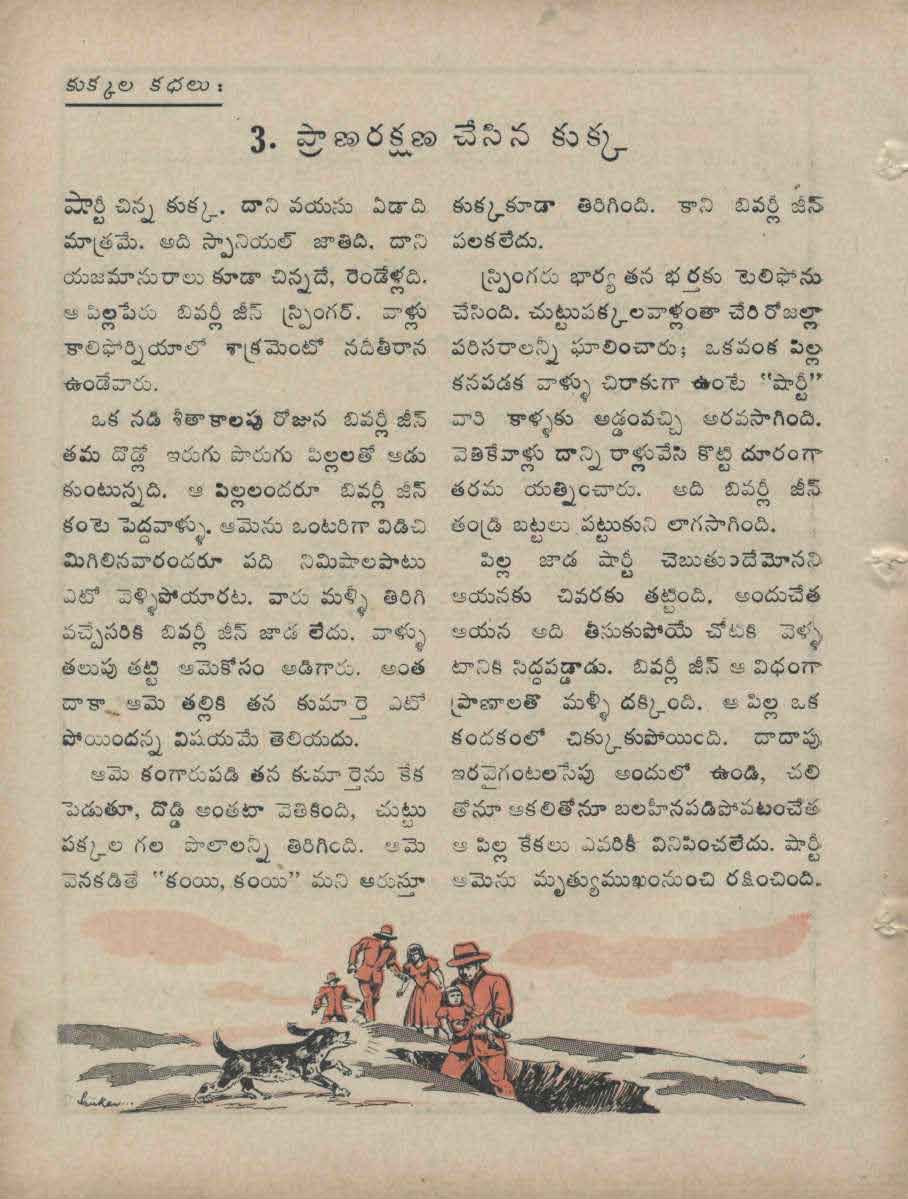 కుక్కల కథలు :
3. ప్రాణరక్షణ చేసిన కుక్క
షార్టీ చిన్న కుక్క. దాని వయసు ఏడాది
మాత్రమే. అది స్పానియల్ జాతిది. దాని
యజమానురాలు కూడా చిన్నదే, రెండేళ్లది.
ఆ పిల్లపేరు బివర్లీ జీన్ స్ప్రింగర్. వాళ్లు
కాలిఫోర్నియాలో శాక్రమెంటో నదీతీరాన
ఉండేవారు.
ఒక నడి శీతాకాలపు రోజున బివర్లీ జీన్
తమ దొడ్లో ఇరుగు పొరుగు పిల్లలతో ఆడు
కుంటున్నది. ఆ పిల్లలందరూ బివర్లీ జీన్
కంటె పెద్దవాళ్ళు. ఆమెను ఒంటరిగా విడిచి
మిగిలినవారందరూ పది నిమిషాలపాటు
ఎటో వెళ్ళిపోయారట. వారు మళ్ళీ తిరిగి
వచ్చేసరికి బివర్లీ జీన్ జాడ లేదు. వాళ్ళు
తలుపు తట్టి ఆమెకోసం అడిగారు. అంత
దాకా ఆమె తల్లికి తన కుమార్తె ఎటో
పోయిందన్న విషయమే తెలియదు.
ఆమె కంగారుపడి తన కుమార్తెను కేక
పెడుతూ, దొడ్డి అంతటా వెతికింది, చుట్టు
పక్కల గల పొలాలన్నీ తిరిగింది. ఆమె
వెనకడితే "కంయి, కంయి" మని అరుస్తూ
కుక్కకూడా తిరిగింది. కాని బివర్లీ జీన్
పలకలేదు.
స్ప్రింగరు భార్య తన భర్తకు టెలిఫోను
చేసింది. చుట్టుపక్కలవాళ్లంతా చేరి రోజల్లా
పరిసరాలన్నీ ఘాలించారు; ఒకవంక పిల్ల
కనపడక వాళ్ళు చిరాకుగా ఉంటే "షార్టీ"
వారి కాళ్ళకు అడ్డంవచ్చి అరవసాగింది.
వెతికేవాళ్లు దాన్ని రాళ్లువేసి కొట్టి దూరంగా
తరమ యత్నించారు. అది బివర్లీ జీన్
తండ్రి బట్టలు పట్టుకుని లాగసాగింది.
పిల్ల జాడ షార్టీ చెబుతుందేమోనని
ఆయనకు చివరకు తట్టింది. అందుచేత
ఆయన అది తీసుకుపోయే చోటికి వెళ్ళ
టానికి సిద్ధపడ్డాడు. బివర్లీ జీన్ ఆ విధంగా
ప్రాణాలతొ మళ్ళీ దక్కింది. ఆ పిల్ల ఒక
కందకంలో చిక్కుకుపోయింది. దాదాపు
ఇరవైగంటలసేపు అందులో ఉండి, చలి
తోనూ ఆకలితోనూ బలహీనపడిపోవటంచేత
ఆ పిల్ల కేకలు ఎవరికీ వినిపించలేదు. షార్టీ
ఆమెను మృత్యుముఖంనుంచి రక్షించింది.